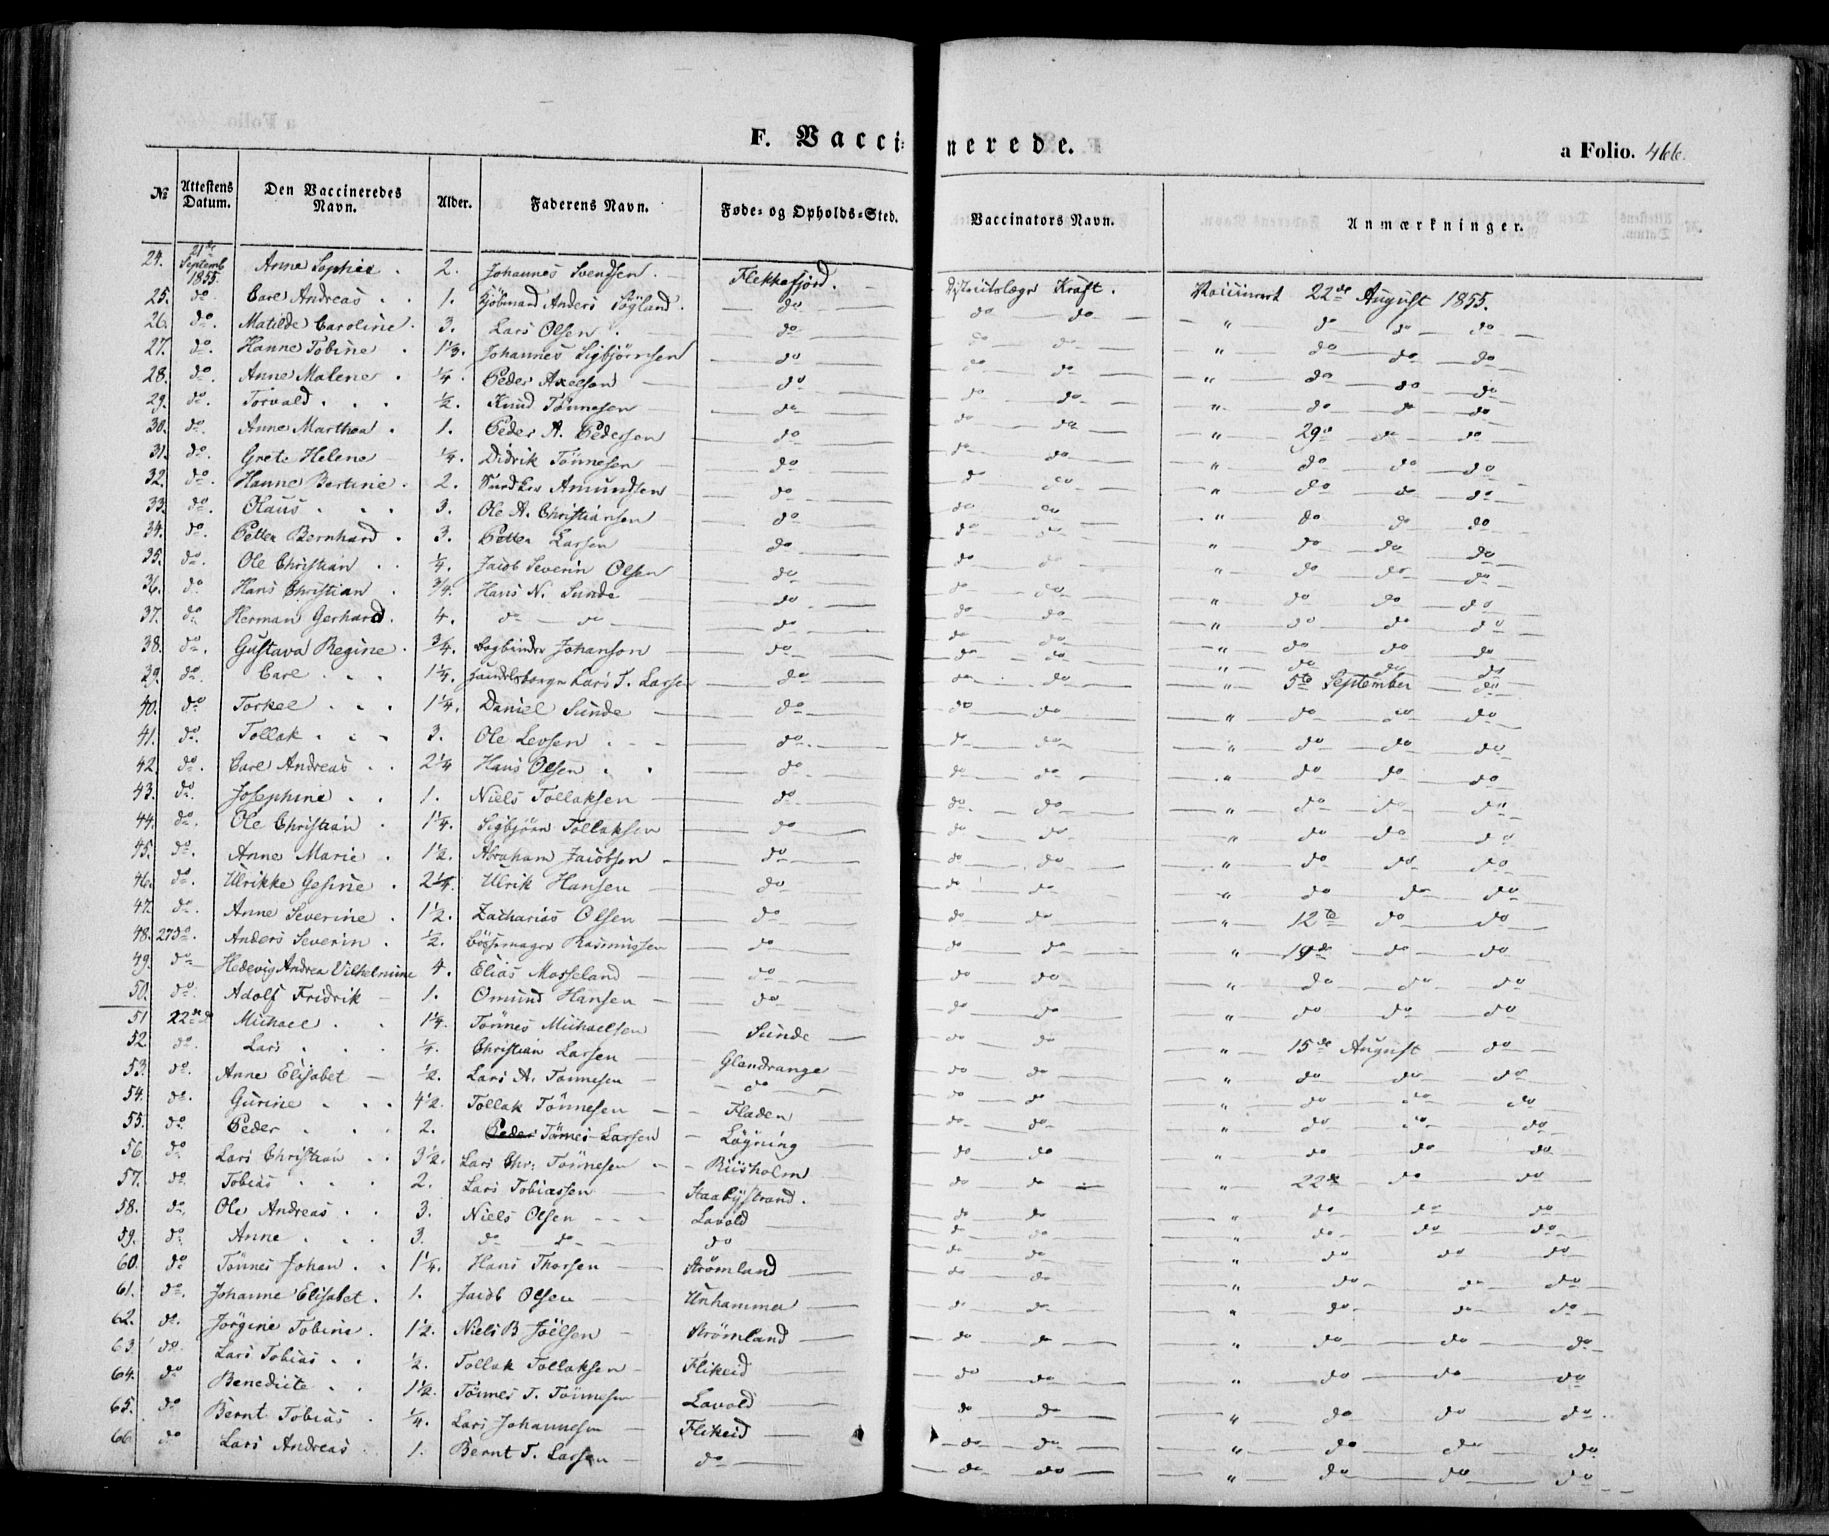 F. Vaccinerede.
a Folio. 466.
№ | Attestens Datum. | Den Vaccineredes Navn. | Alder. | Faderens Navn. | Føde- og Opholds-Sted. | Vaccinators Navn. | Anmærkninger.
24. 21de Septemb 1855. Anne Sophie. 2. Johannes Svendsen. Flekkefjord. Districtslæge Kraft. Vaccineret 22de August 1855.
25. do. Carl Andreas . . 1. Anders Søyland. do do do " do do do
26. do. Matilde Caroline. 3. Lars Olsen. do do do " do do do
27. do. Hanne Tobine . 1 1/3. Johannes Sigbjörnsen do do do " do do do
28. do. Anne Malene . 1/4. Peder Axelsen do do do " do do do
29. do. Torvald . . . 1/2. Knud Tönnesen do do do " 29de do do
30. do. Anne Marthea . 1. Peder A. Pedersen do do do " do do do
31. do. Grete Helene 1/4. Didrik Tönnesen do do do " do do do
32. do. Hanne Bertine . 2. Amundsen do do do " do do do
33. do. Olaus . . . 3. Ole A. Christiansen do do do " do do do
34. do. Petter Bernhard . 3. Petter Larsen do do do " do do do
35. do. Ole Christian . . 1/4. Jacob Severin Olsen do do do " do do do
36. do Hans Christian . 3/4. Hans N. Sunde do do do " do do do
37. do Herman Gerhard. 4. do do do do do " do do do
38. do. Gustava Regine . 3/4. Bogbinder Johanson do do do " do do do
39. do. Carl . . . 1 1/4. Lars T. Larsen do do do " 5te September do
40. do Torkel . . . 1 1/4. Daniel Sunde do do do " do do do
41. do. Tollak . . . 3. Ole Levsen . . do. do do " do do do
42. do. Carl Andreas . . 2 1/4 Hans Olsen . . do do do " do do do
43. do. Josephine . . 1. Niels Tollaksen do do. do " do do do
44. do. Ole Christian . 1 1/4. Sigbjörn Tollaksen do do do " do do do
45. do. Anne Marie . 1 1/2. Abraham Jacobsen do do do " do do do
46. do. Ulrikke Gesine . 2 1/4. Ulrik Hansen do do do " do do do
47. do. Anne Severine . 1 1/2. Zacharias Olsen do do do " 12te do do
48. 27 do. Anders Severin . 1/2. Bössemager Rasmussen do do do " 19de do do
49. do Hedevig Andrea Vilhelmine 4. Elias Mosseland do do do " do do do
50. do. Adolf Fridrik 1. Omund Hansen do do do " do do do
51 22de Michael . . 1 1/4. Tönnes Michaelsen Sunde do do " 15de August do
52. do. Lars . . . 1/4. Christian Larsen Glendrange do do " do do do
53. do. Anne Elisabet 1/2. Lars A. Tonnesen do do do " do do do
54. do. Gurine . . . 4 1/2. Tollak Tönnesen Fladen do do " do do do
55. do Peder . . . 2. Tönnes Larsen Løyning do do " do do do
56. do Lars Christian . . 3 1/2. Lars Chr: Tönnesen Riisholm do do " 22de do do
57. do. Tobias . . . 2. Lars Tobiassen Staalystrand. do do " do do do
58. do. Ole Andreas . . 3. Niels Olsen Lavold do do " do do do
59. do Anne . . . 3. do do do do do " do do do
60. do Tönnes Johan . . 1 1/4. Hans Thorsen Strømland do do " do do do
61. do. Johanne Elisabet . 1. Jacob Olsen Unhammer do do " do do do
62. do. Jörgine Tobine . 1 1/2. Niels B Joelsen Strømland do do " do do do
63. do. Lars Tobias . . 1/2. Tollak Tollaksen Flikeid do do " do do do
64. do Benedicte . . 1 1/2. Tönnes T. Tönnesen Lavold do do " do do do
65. do Bernt Tobias . 1/4. Lars Johannesen Flikeid do do " do do do
66 do Lars Andreas 1. Bernt T. Larsen do do do " do do do